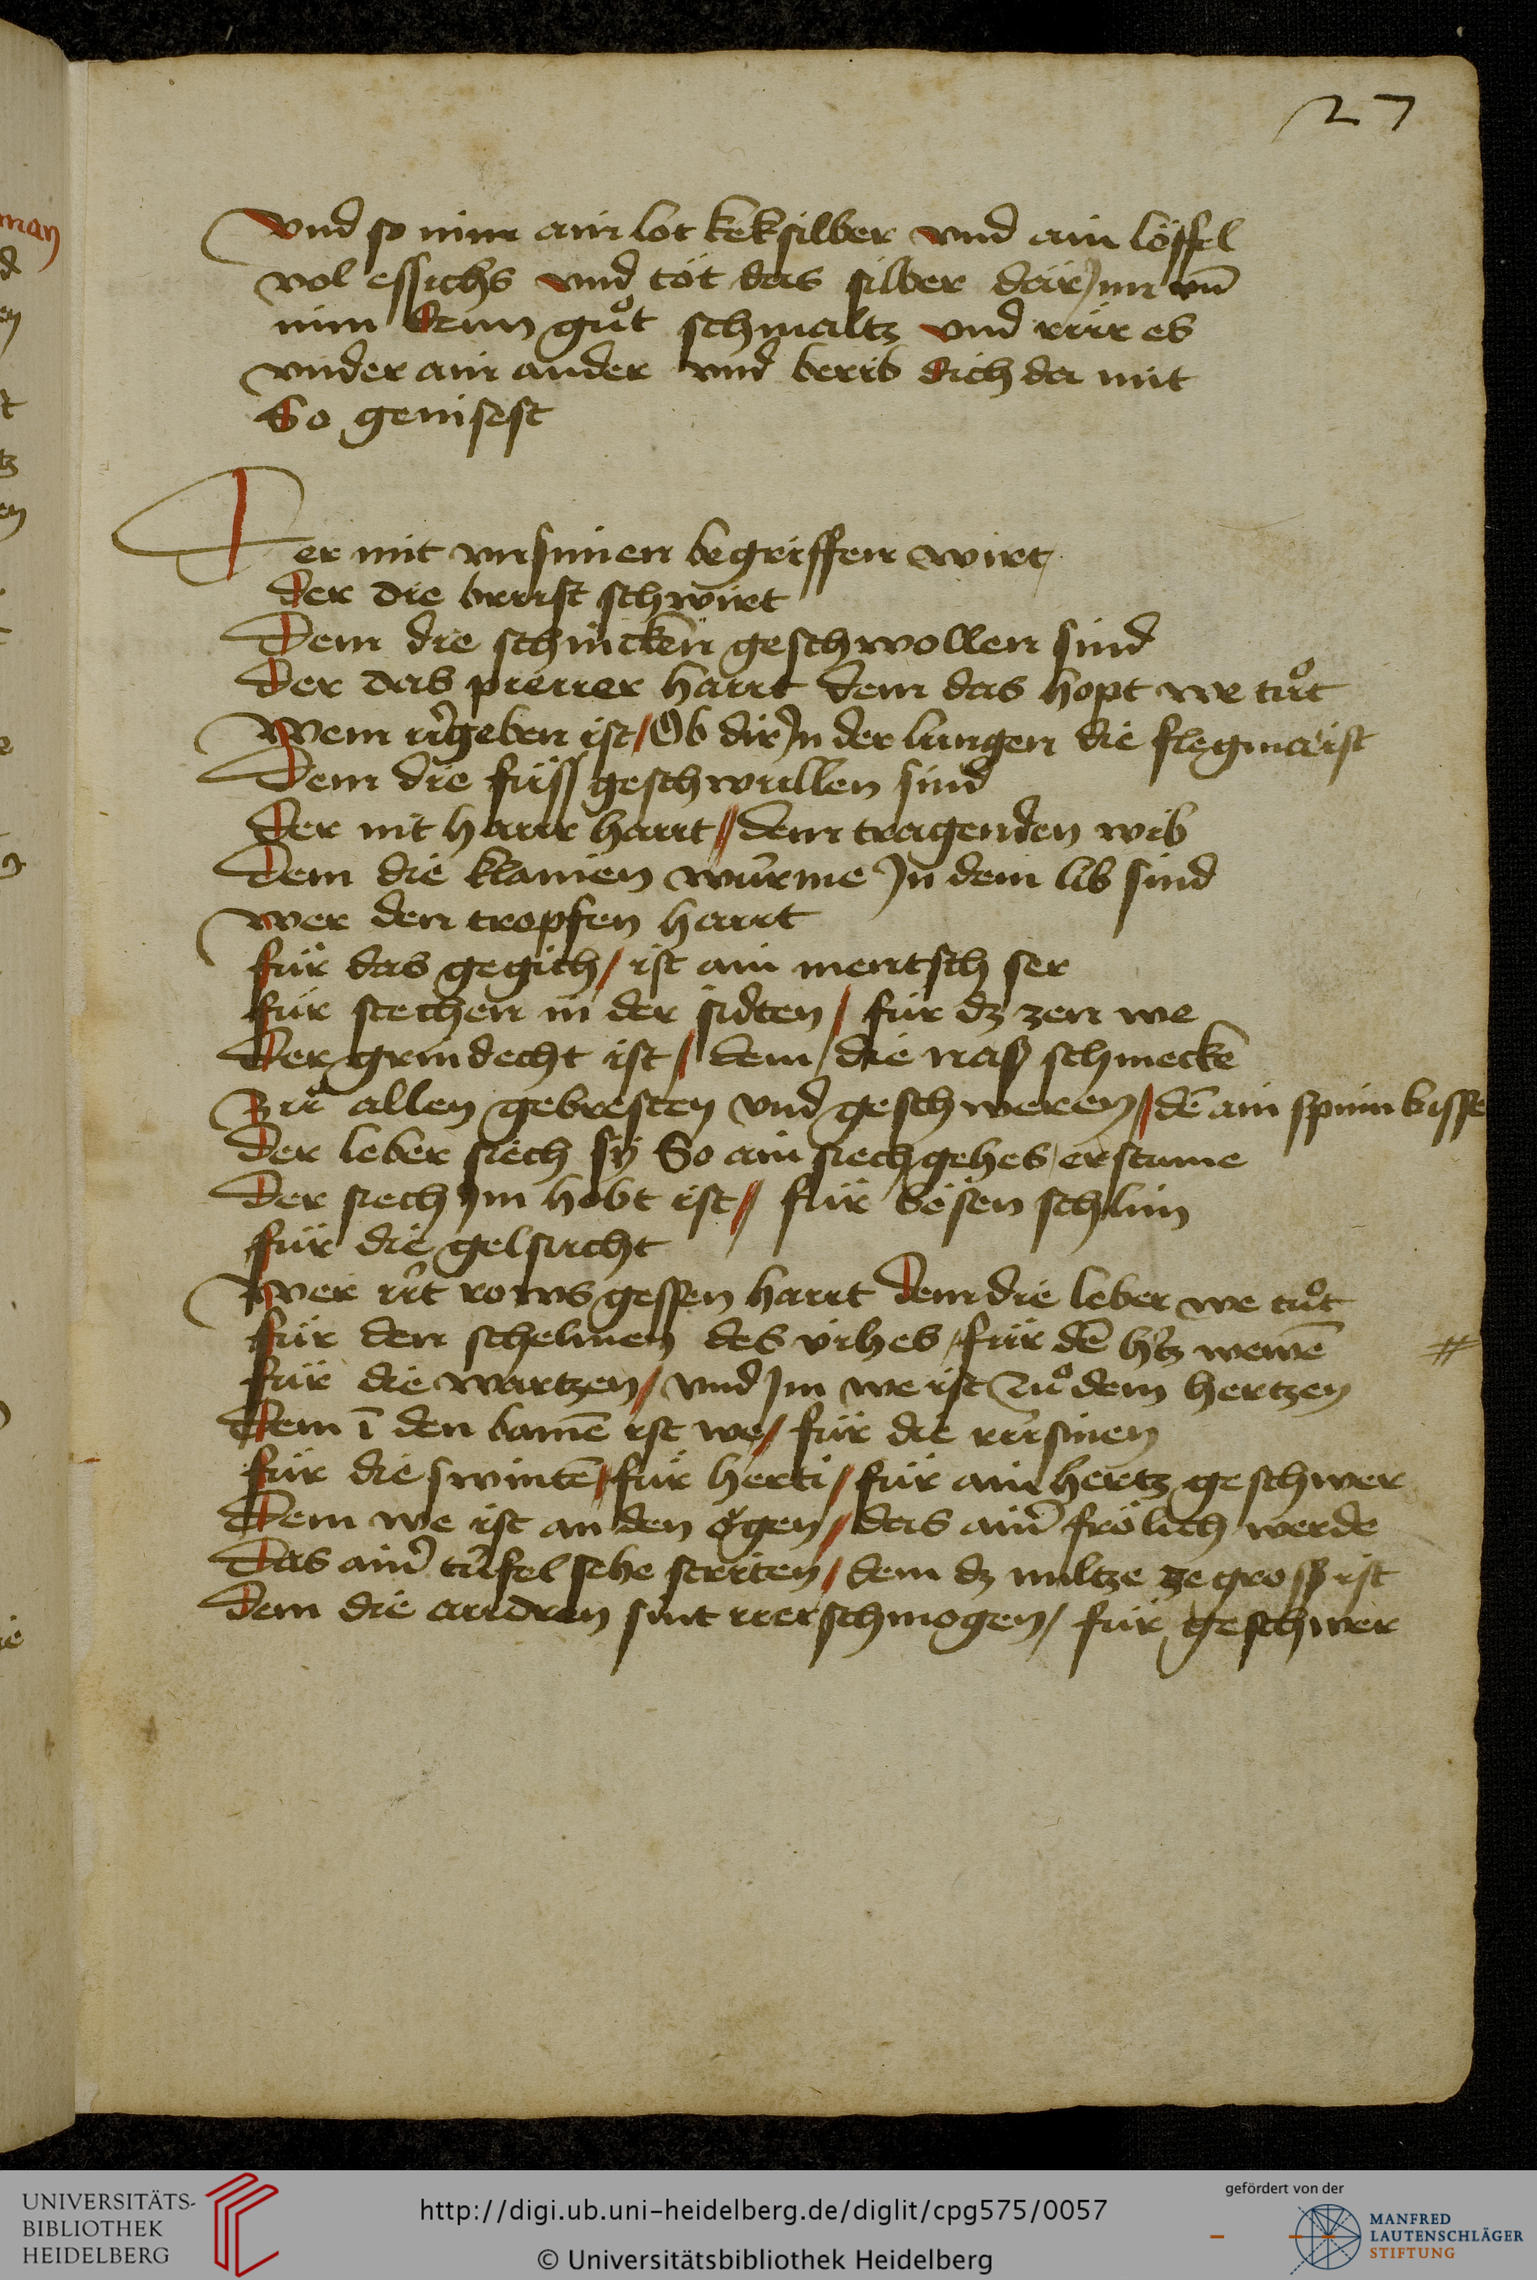 27
vnd so nim ain lot keksilber vnd ain löffel
vol essichs vnd töt das silber där Jnn vn̄
nim denn guͦt schmaltz vnd rür es
vnder ain ander vnd berib dich da mit
So genisest
Der mit vnsinnen begriffen wirt
der die brust schwirt
Dem die schincken geschwollen sind
Der das hautt dem das hopt we tuͦt
Wem ist / Ob dir Jn der lungen die flegma ist
Dem die füss geschwullen sind
Der nit harn hautt // dem tragenden wib
Dem die klainen würme Jn dem lib sind
wer den tropfen hautt
für das gegich / ist ain mentsch ser
für stechen in der sidten / für dz zen we
Der grindecht ist / dem die nasß schmeckē
Zuͦ allen gebresten vnd geschweren / dē ain spinn bisse
Der leber siech sÿ So ain siech gehes erstume
Der siech Jm hobt ist // für bösen schlim
für die gelsucht
Wer rows gessen hautt dem die leber we tuͦt
für den schelmen des vihes für dē
für die wartzen / vnd Jm we ist zuͦ dem hertzen
Dem ī den we / für die
für die swintē / für herti / für ain hertz geschwer
Dem we ist an den ögen // das frölich werde
Das tüfel sehe striten / dem dz miltze ze grosß ist
Dem die audren sint verschmogen / für geschwer
#
UNIVERSITÄTS-
BIBLIOTHEK
HEIDELBERG
http://digi.ub.uni-heidelberg.de/diglit/cpg575/0057
© Universitätsbibliothek Heidelberg
gefördert von der
MANFRED
LAUTENSCHLÄGER
STIFTUNG